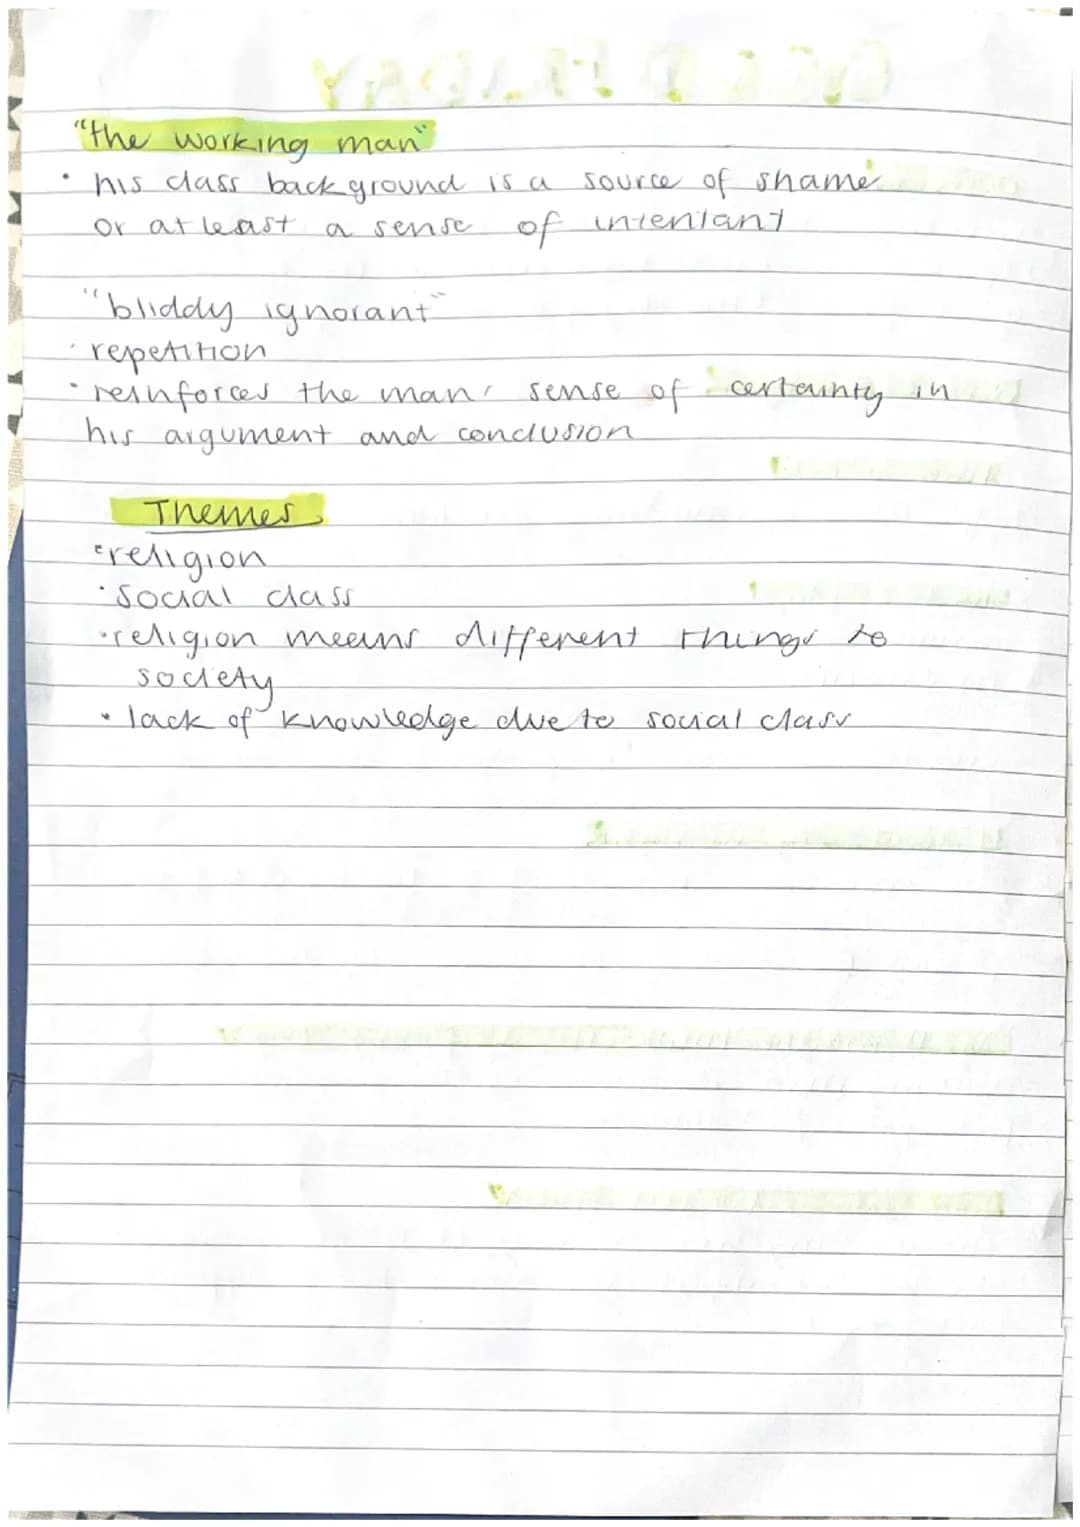 "the working man"
· his class background is a source of shame
or at least a sense of intentant
"bliddy ignorant"
· repetition
· reinforces the mans sense of certainty in
his argument and conclusion
Themes
· religion
· social class
· religion means different things to
society
· lack of knowledge due to social class